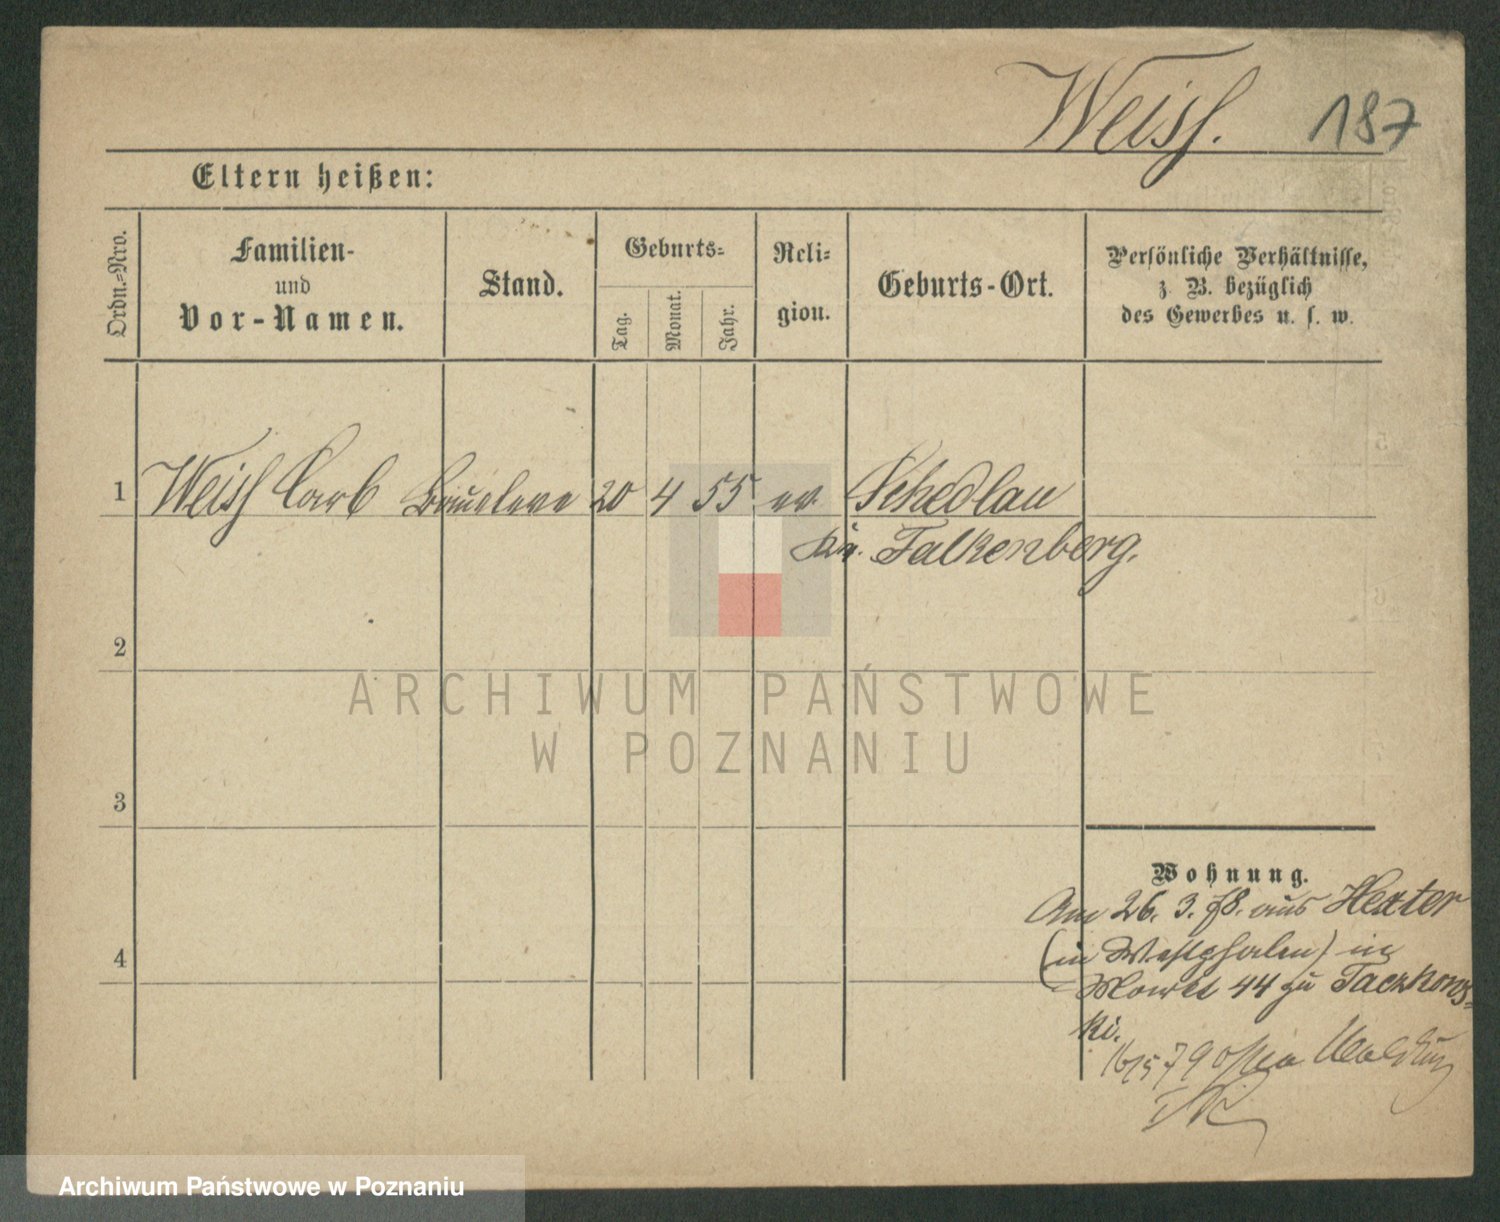 Weiss.
187
Eltern heißen:
Ordn.-Nro.
Familien-
und
Vor-Namen.
Stand.
Geburts-
Tag.
Monat.
Jahr.
Reli-
gion.
Geburts-Ort.
Persönliche Verhältnisse,
z. B. bezüglich
des Gewerbes u. s. w.
1 Weiss Carl 20 4 55 ev Schedlau
Kr. Falkenberg.
2
ARCHIWUM PAŃSTWOWE
W POZNANIU
3
Wohnung.
Am 26. 3. 78. aus Hexter
4
(in Westphalen) in
Markt 44 zu Taczkows-
ki.
79 ohne Meldung
Archiwum Państwowe w Poznaniu